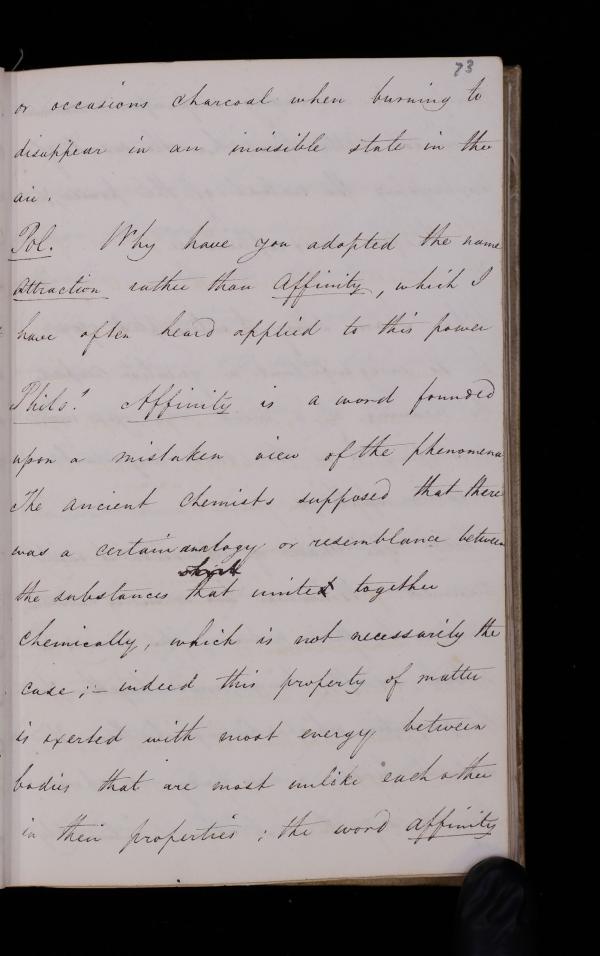 73
or occasions charcoal when burning to
disappear in an invisible state in the
air.
Pol. Why have you adopted the name
attraction rather than Affinity, which I
have often heard applied to this power
Phils! Affinity is a word founded
upon a mistaken view of the phenomena
The ancient Chemists supposed that there
was a certain analogy or resemblance between
the substances that unite together
chemically, which is not necessarily the
case ;– indeed this property of matter
is exerted with most energy between
bodies that are most unlike each other
in their properties ; the word affinity